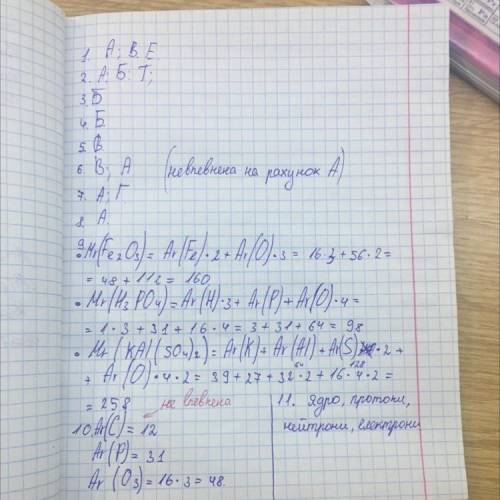 1. А; В. Е.
2. А; Б; Г;
3. Б
4. Б.
5. В.
6. В; А (невпевнена на рахунок А)
7. А; Г
8. А.
9. • Mr(Fe2O3) = Ar(Fe)·2 + Ar(O)·3 = 16·3 + 56·2 =
= 48 + 112 = 160
• Mr(H3PO4) = Ar(H)·3 + Ar(P) + Ar(O)·4 =
= 1·3 + 31 + 16·4 = 3 + 31 + 64 = 98
• Mr(KAl(SO4)2) = Ar(K) + Ar(Al) + Ar(S)·2 +
+ Ar(O)·4·2 = 39 + 27 + 32·2 + 16·4·2 =
64 128
= 258
не впевнена
10. Ar(C) = 12
Ar(P) = 31
Ar(O3) = 16·3 = 48.
11. Ядро, протони,
нейтрони, електрони